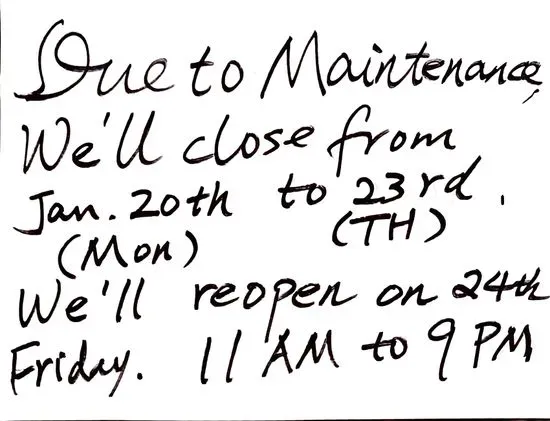 Due to Maintenance,
We'll close from
Jan. 20th to 23rd.
(Mon) (TH)
We'll reopen on 24th
Friday. 11 AM to 9 PM